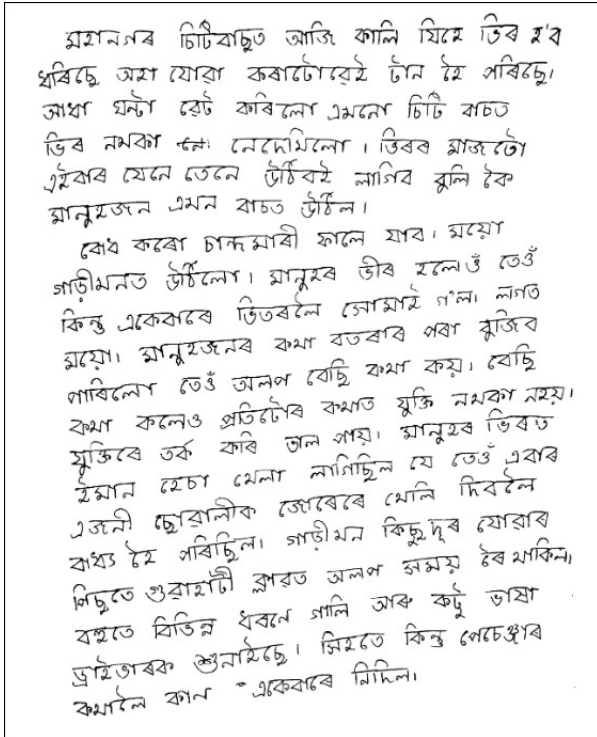 মহানগৰ চিটিবাছত আজি কালি যিহে ভিৰ হ'ব
ধৰিছে অহা যোৱা কৰাটোৱেই টান হৈ পৰিছে।
আধা ঘন্টা ৱেট কৰিলো এমনো চিটি বাচত
ভিৰ নথকা নেদেখিলো। ভিৰৰ মাজতো
এইবাৰ যেনে তেনে উঠিবই লাগিব বুলি কৈ
মানুহজন এখন বাচত উঠিল।
বোধ কৰো চান্দমাৰী ফালে যাব। ময়ো
গাড়ীখনত উঠিলো। মানুহৰ ভীৰ হলেওঁ তেওঁ
কিন্তু একেবাৰে ভিতৰলৈ সোমাই গ'ল। লগত
ময়ো। মানুহজনৰ কথা বতৰাৰ পৰা বুজিব
পাৰিলো তেওঁ অলপ বেছি কথা কয়। বেছি
কথা কলেও প্ৰতিটোৰ কথাত যুক্তি নথকা নহয়।
যুক্তিৰে তৰ্ক কৰি ভাল পায়। মানুহৰ ভিৰত
ইমান হেচা থেলা লাগিছিল যে তেওঁ এবাৰ
এজনী ছোৱালীক জোৰেৰে থেলি দিবলৈ
বাধ্য হৈ পৰিছিল। গাড়ীখন কিছু দূৰ যোৱাৰ
পিছতে গুৱাহাটী ক্লাৱত অলপ সময় ৰৈ থাকিল।
বহুতে বিভিন্ন ধৰণে গালি আৰু কটু ভাষা
ড্ৰাইভাৰক শুনাইছে। সিহতে কিন্তু পেচেঞ্জাৰ
কথালৈ কান একেবাৰে নিদিল।